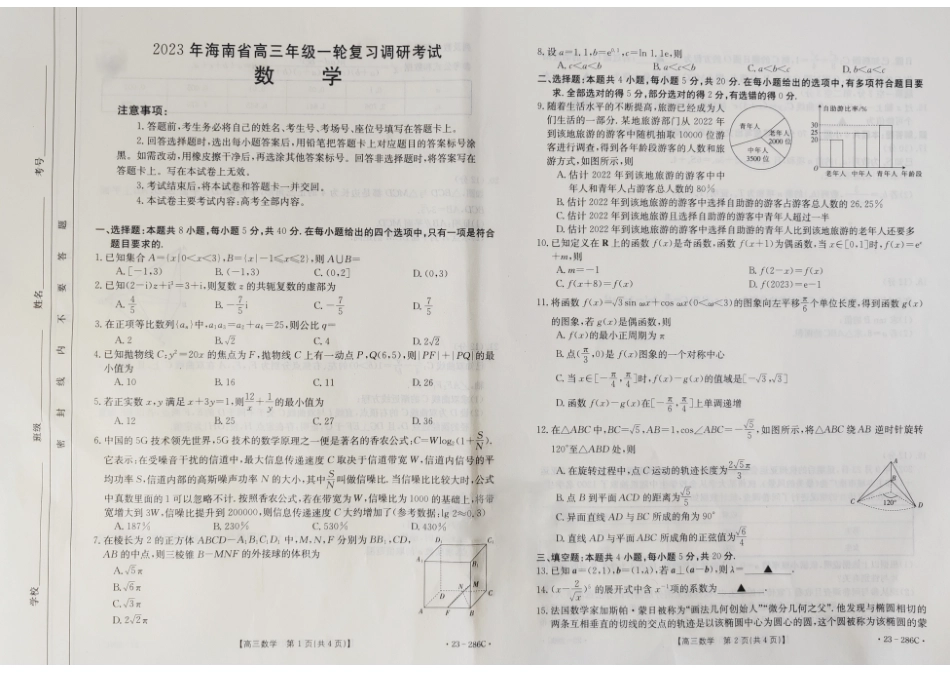 2023 年海南省高三年级一轮复习调研考试
数 学
注意事项:
1. 答题前,考生务必将自己的姓名、考生号、考场号、座位号填写在答题卡上。
2. 回答选择题时,选出每小题答案后,用铅笔把答题卡对应题目的答案标号涂
黑。如需改动,用橡皮擦干净后,再选涂其他答案标号。回答非选择题时,将答案写在
答题卡上。写在本试卷上无效。
3. 考试结束后,将本试卷和答题卡一并交回。
4. 本试卷主要考试内容:高考全部内容。
一、选择题:本题共 8 小题,每小题 5 分,共 40 分. 在每小题给出的四个选项中,只有一项是符合
题目要求的.
1. 已知集合 A={x|0<x<3},B={x|-1≤x≤2},则 A∪B=
A. [-1,3) B. (-1,3) C. (0,2] D. (0,3)
2. 已知(2-i)z+i²=3+i,则复数 z 的共轭复数的虚部为
A. 4/5 B. -7/5 i C. -7/5 D. 7/5
3. 在正项等比数列{aₙ}中,
则公比 q=
A. 2 B. √2 C. 4 D. 2√2
4. 已知抛物线 C:y²=20x 的焦点为 F,抛物线 C 上有一动点 P,Q(6,5),则|PF|+|PQ|的最
小值为
A. 10 B. 16 C. 11 D. 26
5. 若正实数 x,y 满足 x+3y=1,则 12/x + 1/y 的最小值为
A. 12 B. 25 C. 27 D. 36
6. 中国的 5G 技术领先世界,5G 技术的数学原理之一便是著名的香农公式:C=Wlog₂(1+S/N),
它表示:在受噪音干扰的信道中,最大信息传递速度 C 取决于信道带宽 W,信道内信号的平
均功率 S,信道内部的高斯噪声功率 N 的大小,其中 S/N 叫做信噪比. 当信噪比比较大时,公式
中真数里面的 1 可以忽略不计. 按照香农公式,若在带宽为 W,信噪比为 1000 的基础上,将带
宽增大到 3W,信噪比提升到 200000,则信息传递速度 C 大约增加了(参考数据:lg 2≈0.3)
A. 187% B. 230% C. 530% D. 430%
7. 在棱长为 2 的正方体 ABCD-A₁B₁C₁D₁ 中,M,N,F 分别为 BB₁,CD,
AB 的中点,则三棱锥 B-MNF 的外接球的体积为
A. √5π
B. √6π
C. √3π
D. 2√2π
D₁ C₁
A₁ B₁
N M
D C
A F B
【高三数学 第 1 页(共 4 页)】 · 23-286C ·
学校
班级
姓名
考号
密 封 线 内 不 要 答 题
8. 设 a=1.1,b=e⁰·¹,c=ln 1.1e,则
A. c<a<b B. a<c<b C. a<b<c D. b<a<c
二、选择题:本题共 4 小题,每小题 5 分,共 20 分. 在每小题给出的选项中,有多项符合题目要
求. 全部选对的得 5 分,部分选对的得 2 分,有选错的得 0 分.
9. 随着生活水平的不断提高,旅游已经成为人
们生活的一部分. 某地旅游部门从 2022 年
到该地旅游的游客中随机抽取 10000 位游
客进行调查,得到各年龄段游客的人数和旅
游方式,如图所示,则
青年人
老年人
2000 位
中年人
3500 位
自助游比率/%
30
25
20
0 老年人 中年人 青年人 年龄段
A. 估计 2022 年到该地旅游的游客中中
年人和青年人占游客总人数的 80%
B. 估计 2022 年到该地旅游的游客中选择自助游的游客占游客总人数的 26.25%
C. 估计 2022 年到该地旅游且选择自助游的游客中青年人超过一半
D. 估计 2022 年到该地旅游的游客中选择自助游的青年人比到该地旅游的老年人还要多
10. 已知定义在 R 上的函数 f(x)是奇函数,函数 f(x+1)为偶函数,当 x∈[0,1]时,f(x)=eˣ
+m,则
A. m=-1 B. f(2-x)=f(x)
C. f(x+8)=f(x) D. f(2023)=e-1
11. 将函数 f(x)=√3sin ωx+cos ωx(0<ω<3)的图象向左平移 π/6 个单位长度,得到函数 g(x)
的图象,若 g(x)是偶函数,则
A. f(x)的最小正周期为 π
B. 点(π/3,0)是 f(x)图象的一个对称中心
C. 当 x∈[-π/4,π/4]时,f(x)-g(x)的值域是[-√3,√3]
D. 函数 f(x)-g(x)在[-π/6,π/4]上单调递增
12. 在△ABC 中,BC=√5,AB=1,cos∠ABC=-√5/5,如图所示,将△ABC 绕 AB 逆时针旋转
120°至△ABD 处,则
A. 在旋转过程中,点 C 运动的轨迹长度为 2√5π/3
B. 点 B 到平面 ACD 的距离为
C. 异面直线 AD 与 BC 所成的角为 90°
D. 直线 AD 与平面 ABC 所成角的正弦值为 √6/4
A
B
C 120° D
三、填空题:本题共 4 小题,每小题 5 分,共 20 分.
13. 已知 a=(2,1),b=(1,λ),若 a⊥(a-b),则 λ= ▲ .
14. 的展开式中含 x⁻¹项的系数为 ▲ .
15. 法国数学家加斯帕·蒙日被称为“画法几何创始人”“微分几何之父”. 他发现与椭圆相切的
两条互相垂直的切线的交点的轨迹是以该椭圆中心为圆心的圆,这个圆被称为该椭圆的蒙
【高三数学 第 2 页(共 4 页)】 · 23-286C ·